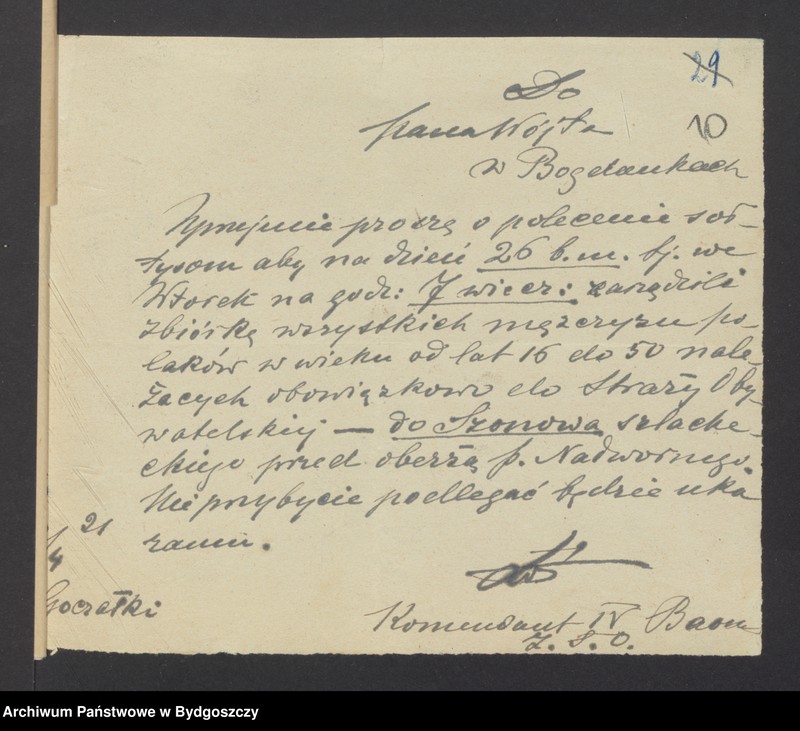 29
10
Do
pana Wójta
w Bogdankach
Uprzejmie proszę o polecenie soł-
tysom aby na dzień 26 b.m. tj. we
Wtorek na godz: 7 wiecz: zarządzili
zbiórkę wszystkich mężczyzn po-
laków w wieku od lat 16 do 50 nale-
żacych obowiązkowo do Straży Oby-
watelskiej — do Szonowa szlache-
ckiego przed oberżą p. Nadwornego.
Nie przybycie podlegać będzie uka
raniu.
21
4
Goczałki
Komendant IV Baonu
S. O.
Archiwum Państwowe w Bydgoszczy